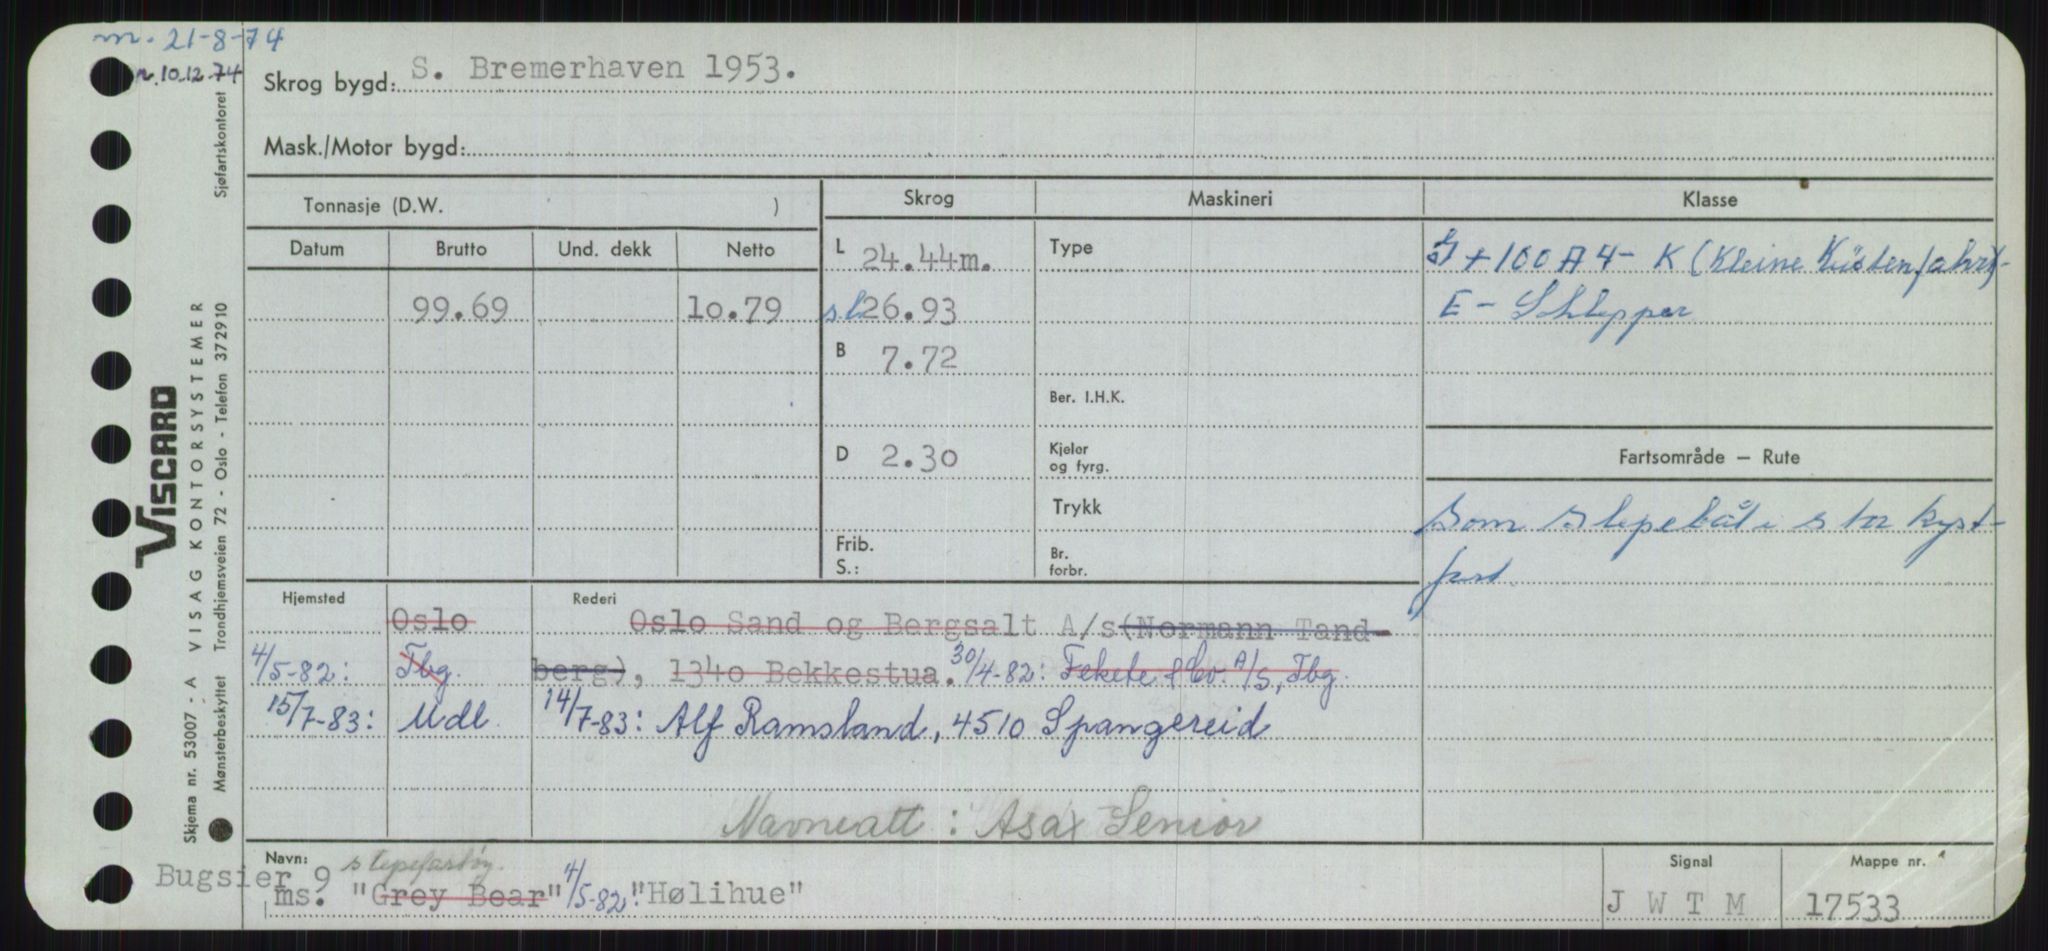 m. 21-8-74
n. 10.12.74
Skrog bygd: S. Bremerhaven 1953.
Mask./Motor bygd:
Tonnasje (D.W. )
Skrog
Maskineri
Klasse
Datum Brutto Und. dekk Netto
99.69 10.79
L 24.44m.
sl 26.93
B 7.72
D 2.30
Frib.
S.:
Type
Ber. I.H.K.
Kjeler
og fyrg.
Trykk
Br.
forbr.
+ 100 A 4 - K (Kleine Küstenfahrt)-
E - Schlepper
Fartsområde — Rute
Som slepebåt i stor kyst-
fart.
Hjemsted Rederi
Oslo Oslo Sand og Bergsalt A/s (Normann Tand-
4/5-82: Tbg. berg), 1340 Bekkestua. 30/4-82: Fekete & Co. A/S, Tbg.
15/7-83: Mdl. 14/7-83: Alf Ramsland, 4510 Spangereid
Navneatt: Asax Senior
Navn: slepefartøy.
Bugsier 9
ms. "Grey Bear" 4/5-82: "Hølihue"
Signal
J W T M
Mappe nr.
17533
VISCARD
VISAG KONTORSYSTEMER
Skjema nr. 53007 - A
Mønsterbeskyttet Trondhjemsveien 72 - Oslo - Telefon 372910
Sjøfartskontoret